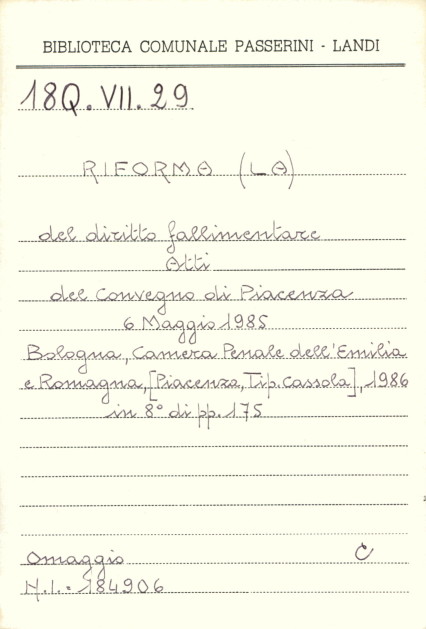 BIBLIOTECA COMUNALE PASSERINI - LANDI
18Q. VII. 29
RIFORMA (LA)
del diritto fallimentare
Atti
del Convegno di Piacenza
6 Maggio 1985
Bologna, Camera Penale dell'Emilia
e Romagna, [Piacenza, Tip. Cassola], 1986
in 8° di pp. 175
Omaggio C
N.I. = 184906